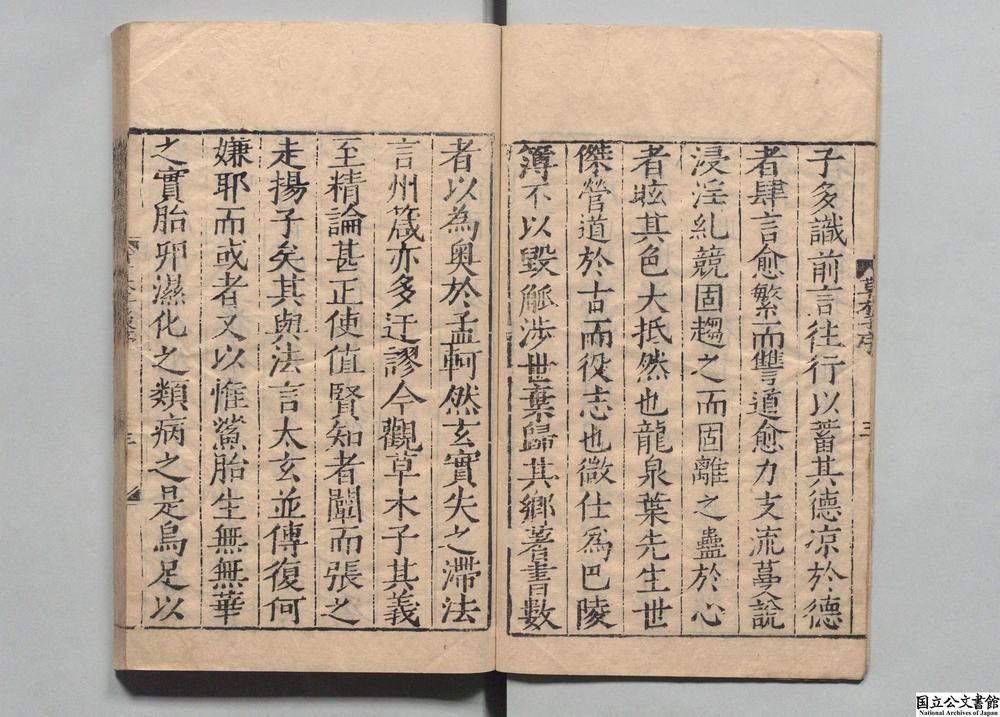 子多識前言往行以蓄其德凉於德
者肆言愈繁而讐道愈力支流蔓說
浸淫糺競固趨之而固離之蠱於心
者眩其色大抵然也龍泉葉先生世
傑營道於古而役志也微仕為巴陵
簿不以毀觚涉世棄歸其鄉著書數
者以為奥於孟軻然玄實失之滯法
言州箴亦多迂謬今觀草木子其義
至精論甚正使值賢知者闡而張之
走揚子矣其與法言太玄並傳復何
嫌耶而或者又以惟鯊胎生無無華
之實胎卵濕化之類病之是烏足以
草木子序
三
三
国立公文書館
National Archives of Japan